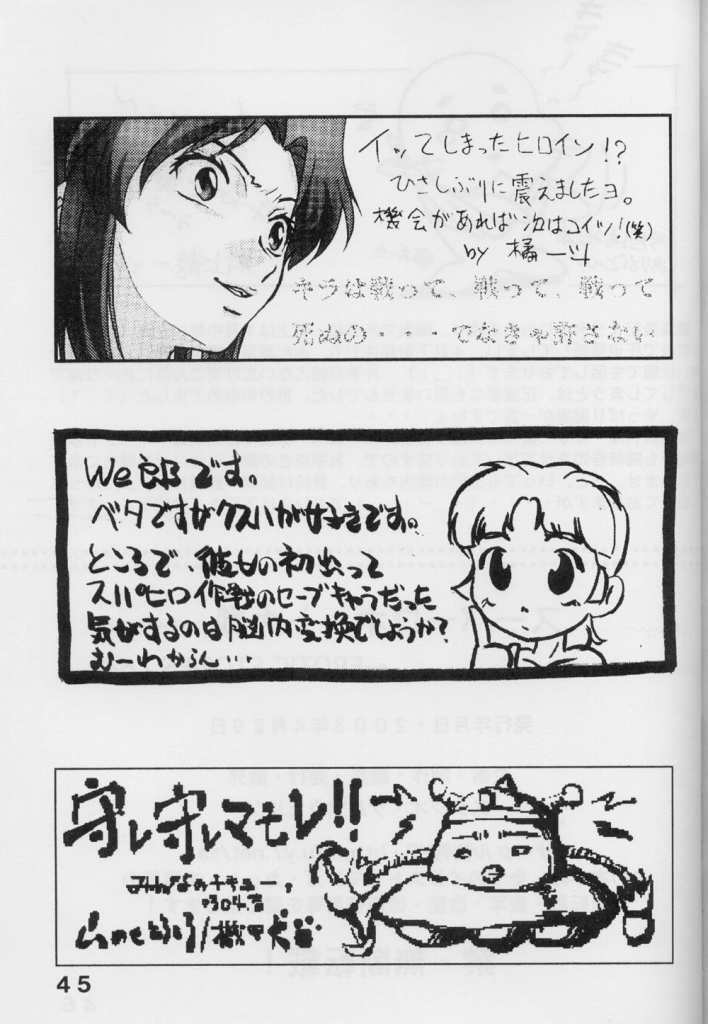 イッてしまったヒロイン!?
ひさしぶりに震えましたヨ。
機会があれば次はコイツ!(笑)
by 橘一ツ
キラは戦って、戦って、戦って
死ぬの・・・でなきゃ許さない
We郎です
ベタですがクスハが好きです。
ところで、彼女の初出って
スパヒロ作戦のセーブキャラだった
気がするのは脳内変換でしょうか?
むーわからん…
守レ守レマモレ!!
みんなのチキュー。
45